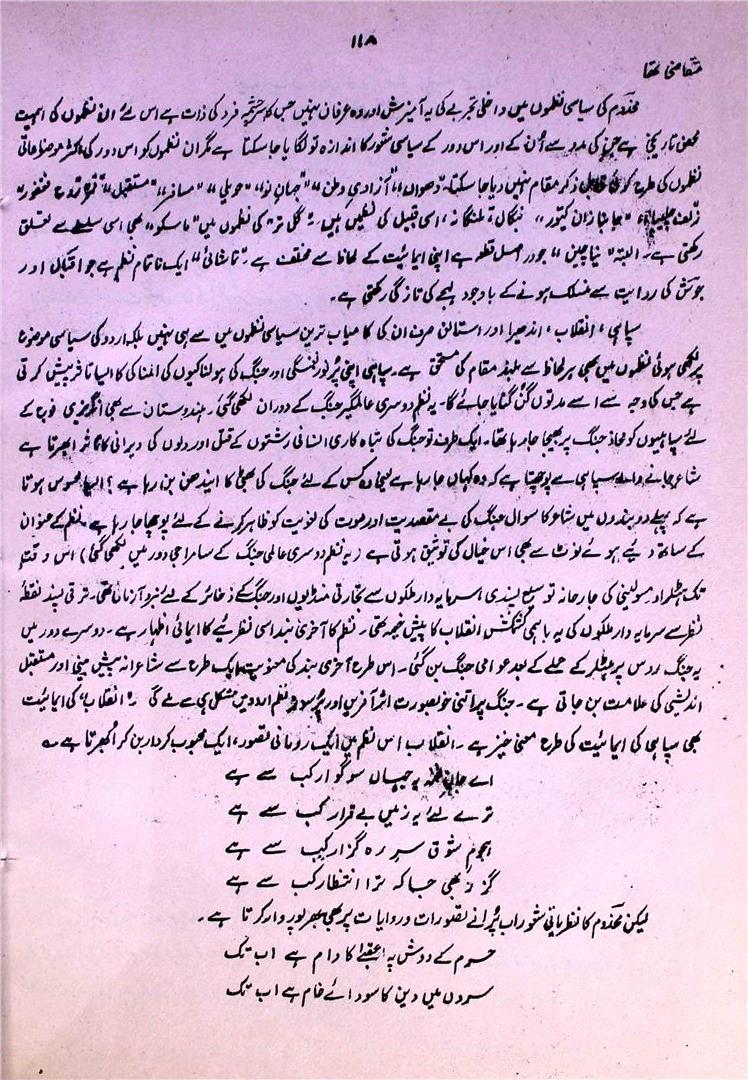 ۱۱۸
متقاضی تھا
مخدوم کی سیاسی نظموں میں داخلی تجربے کی یہ آمیزش اور وہ عرفان نہیں جس کا سرچشمہ فرد کی ذات ہے اس لئے ان نظموں کی اہمیت
محض تاریخی ہے جن کی مدد سے اُن کے اور اس دور کے سیاسی شعور کا اندازہ تو لگایا جا سکتا ہے مگر ان نظموں کو اس دور کی اکثر موضوعاتی
نظموں کی طرح کوئی قابل ذکر مقام نہیں دیا جا سکتا۔ "دھواں"، "آزادی وطن"، "جہان نو"، "حویلی"، "مسافر"، "مستقبل"،
زلف چلیپا، "جانبازان کیور"، بنگال، تلنگانہ، اسی قبیل کی نظمیں ہیں۔ گل تر کی نظموں میں "ماسکو" بھی اسی سلسلے سے تعلق
رکھتی ہے۔ البتہ "نیا چین" جو در اصل قطعہ ہے اپنی ایمائیت کے لحاظ سے مختلف ہے۔ "تماشائی" ایک ناتمام نظم ہے جو اقبال اور
جوش کی روایت سے منسلک ہونے کے باوجود لہجے کی تازگی رکھتی ہے۔
سپاہی، انقلاب، اندھیرا اور استالن صرف ان کی کامیاب ترین سیاسی نظموں میں سے ہی نہیں بلکہ اردو کی سیاسی موضوع
پر لکھی ہوئی نظموں میں بھی ہر لحاظ سے بلند مقام کی مستحق ہے۔ سپاہی اپنی پُر درد نغمگی اور جنگ کی ہولناکیوں کی المناکی کا ایسا تاثر پیش کرتی
ہے جس کی وجہ سے اسے مدتوں گُن گُنایا جائے گا۔ یہ نظم دوسری عالمگیر جنگ کے دوران لکھی گئی۔ ہندوستان سے بھی انگریزی فوج کے
لئے سپاہیوں کو محاذ جنگ پر بھیجا جا رہا تھا۔ ایک طرف تو جنگ کی تباہ کاری انسانی رشتوں کے قتل اور دلوں کی ویرانی کا تاثر ابھرتا ہے
شاعر جانے والے سپاہی سے پوچھتا ہے کہ وہ کہاں جا رہا ہے یعنی وہ کس کے لئے جنگ کی بھٹی کا ایندھن بن رہا ہے؟ ایسا محسوس ہوتا
ہے کہ پہلے دو بندوں میں شاعر کا سوال جنگ کی بے مقصدیت اور موت کی لغویت کو ظاہر کرنے کے لئے پوچھا جا رہا ہے۔ نظم کے عنوان
کے ساتھ دیئے ہوئے نوٹ سے بھی اس خیال کی توثیق ہوتی ہے (یہ نظم دوسری عالمی جنگ کے سامراجی دور میں لکھی گئی) اس وقت
تک ہٹلر اور مسولینی کی جارحانہ توسیع پسندی، سرمایہ دار ملکوں سے تجارتی منڈیوں اور جنگ کے ذخائر کے لئے نبرد آزما تھی۔ ترقی پسند نقطۂ
نظر سے سرمایہ دار ملکوں کی یہ باہمی کشمکش انقلاب کا پیش خیمہ تھی۔ نظم کا آخری بند اسی نظریے کا ایمائی اظہار ہے۔ دوسرے دور میں
یہ جنگ روس پر ہٹلر کے حملے کے بعد عوامی جنگ بن گئی۔ اس طرح آخری بند کی معنویت ایک طرح سے شاعرانہ پیش بینی اور مستقبل
اندیشی کی علامت بن جاتی ہے۔ جنگ پر اتنی خوبصورت اثر آفریں اور پُرسوز نظم اردو میں مشکل ہی سے ملے گی۔ "انقلاب" کی ایمائیت
بھی سپاہی کی ایمائیت کی طرح معنی خیز ہے۔ انقلاب اس نظم میں ایک رومانی تصور، ایک محبوب کردار بن کر اُبھرتا ہے۔
اے جان نغمہ یہ جہاں سوگوار کب سے ہے
ترے لئے یہ زمیں بے قرار کب سے ہے
ہجوم شوق سر رہ گزار کب سے ہے
گزر بھی جا کہ ترا انتظار کب سے ہے
لیکن مخدوم کا نظریاتی شعور اب پُرانے تصورات و روایات پر بھی بھرپور وار کرتا ہے۔
حرم کے دوش پہ عقبیٰ کا دام ہے اب تک
سروں میں دین کا سودائے خام ہے اب تک